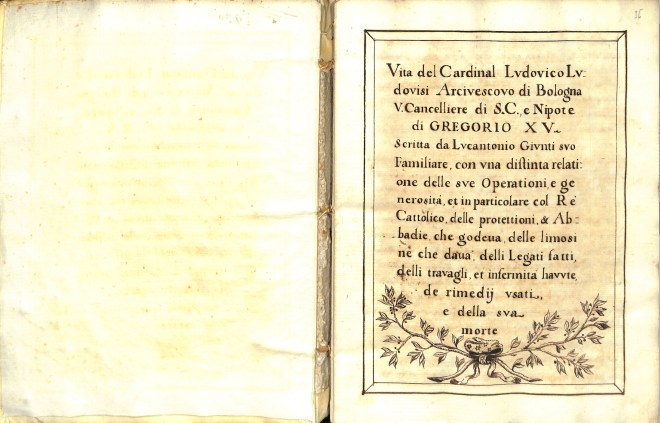 Vita del Cardinal Lvdovico Lv:
dovisi Arcivescovo di Bologna
V. Cancelliere di S.C., e Nipote
di GREGORIO XV
Scritta da Lvcantonio Givnti svo
Familiare, con vna distinta relati:
one delle sve Operationi, e ge
nerosità, et in particolare col Rè
Cattòlico, delle protettioni, & Ab:
badie, che godeua, delle limosi
nè che daua, delli Legati fatti,
delli travagli, et infermità havvte,
de rimedij vsati,
e della sva
morte